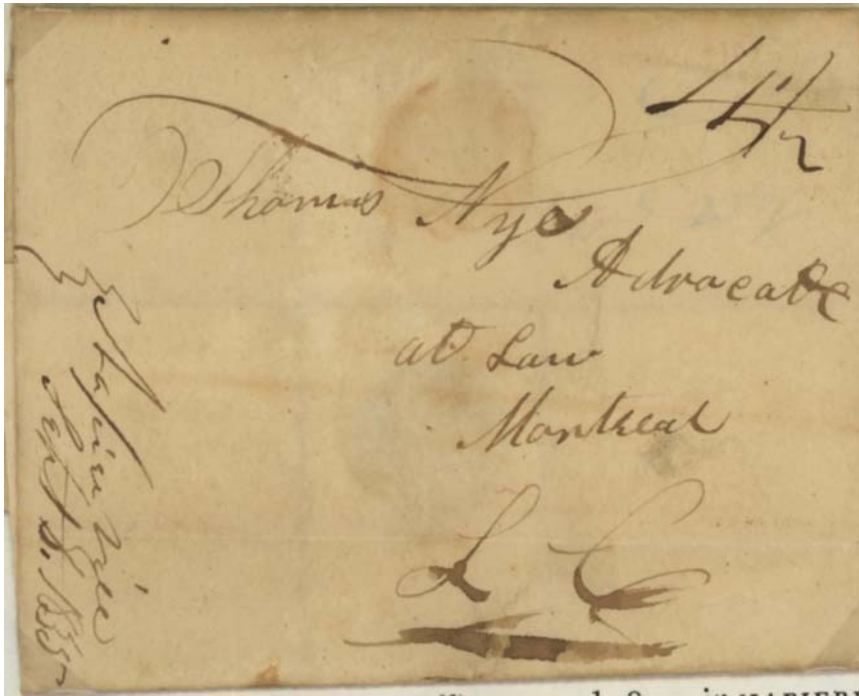 4½
Thomas Nye
Advocate
at Law
Montreal
L C
Napierville
Sept 8. 1835